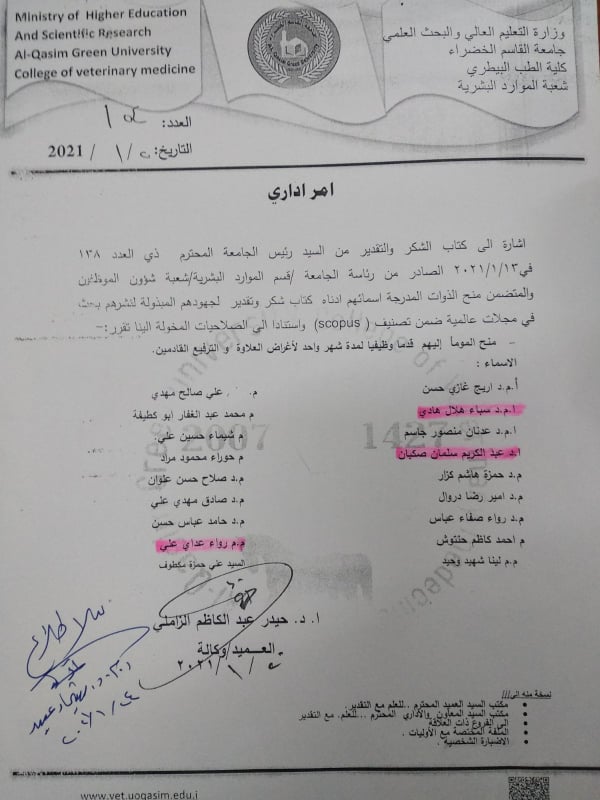 Ministry of Higher Education
And Scientific Research
Al-Qasim Green University
College of veterinary medicine
وزارة التعليم العالي والبحث العلمي
جامعة القاسم الخضراء
كلية الطب البيطري
شعبة الموارد البشرية
العدد:
التاريخ: / ١ / 2021
امر اداري
اشارة الى كتاب الشكر والتقدير من السيد رئيس الجامعة المحترم ذي العدد ١٣٨
في٢٠٢١/١/١٣ الصادر من رئاسة الجامعة /قسم الموارد البشرية/شعبة شؤون الموظفين
والمتضمن منح الذوات المدرجة اسمائهم ادناه كتاب شكر وتقدير لجهودهم المبذولة لنشرهم بحث
في مجلات عالمية ضمن تصنيف ( scopus) واستنادا الى الصلاحيات المخولة الينا تقرر:-
- منح المومأ إليهم قدما وظيفيا لمدة شهر واحد لأغراض العلاوة و الترفيع القادمين.
الاسماء :
أ.م.د اريج غازي حسن
ا.م.د سباء هلال هادي
ا.م.د عدنان منصور جاسم
ا.د عبد الكريم سلمان صكبان
م.د حمزة هاشم كزار
م.د امير رضا دروال
م.د رواء صفاء عباس
م احمد كاظم حنتوش
م.م لينا شهيد وحيد
م. علي صالح مهدي
م محمد عبد الغفار ابو كطيفة
م شيماء حسين علي
م حوراء محمود مراد
م.د صلاح حسن علوان
م.د صادق مهدي علي
م.د حامد عباس حسن
م.م رواء عداي علي
السيد علي حمزة مكطوف
2007 1427
ا. د. حيدر عبد الكاظم الزاملي
العميد/وكالة
/ ١ / ٢٠٢١
نسخة منه الى///
• مكتب السيد العميد المحترم ..للعلم مع التقدير.
• مكتب السيد المعاون والأداري المحترم ...للعلم. مع التقدير
• الى الفروع ذات العلاقة
• الملفة المختصة مع الأوليات .
• الاضبارة الشخصية .
www.vet.uoqasim.edu.i